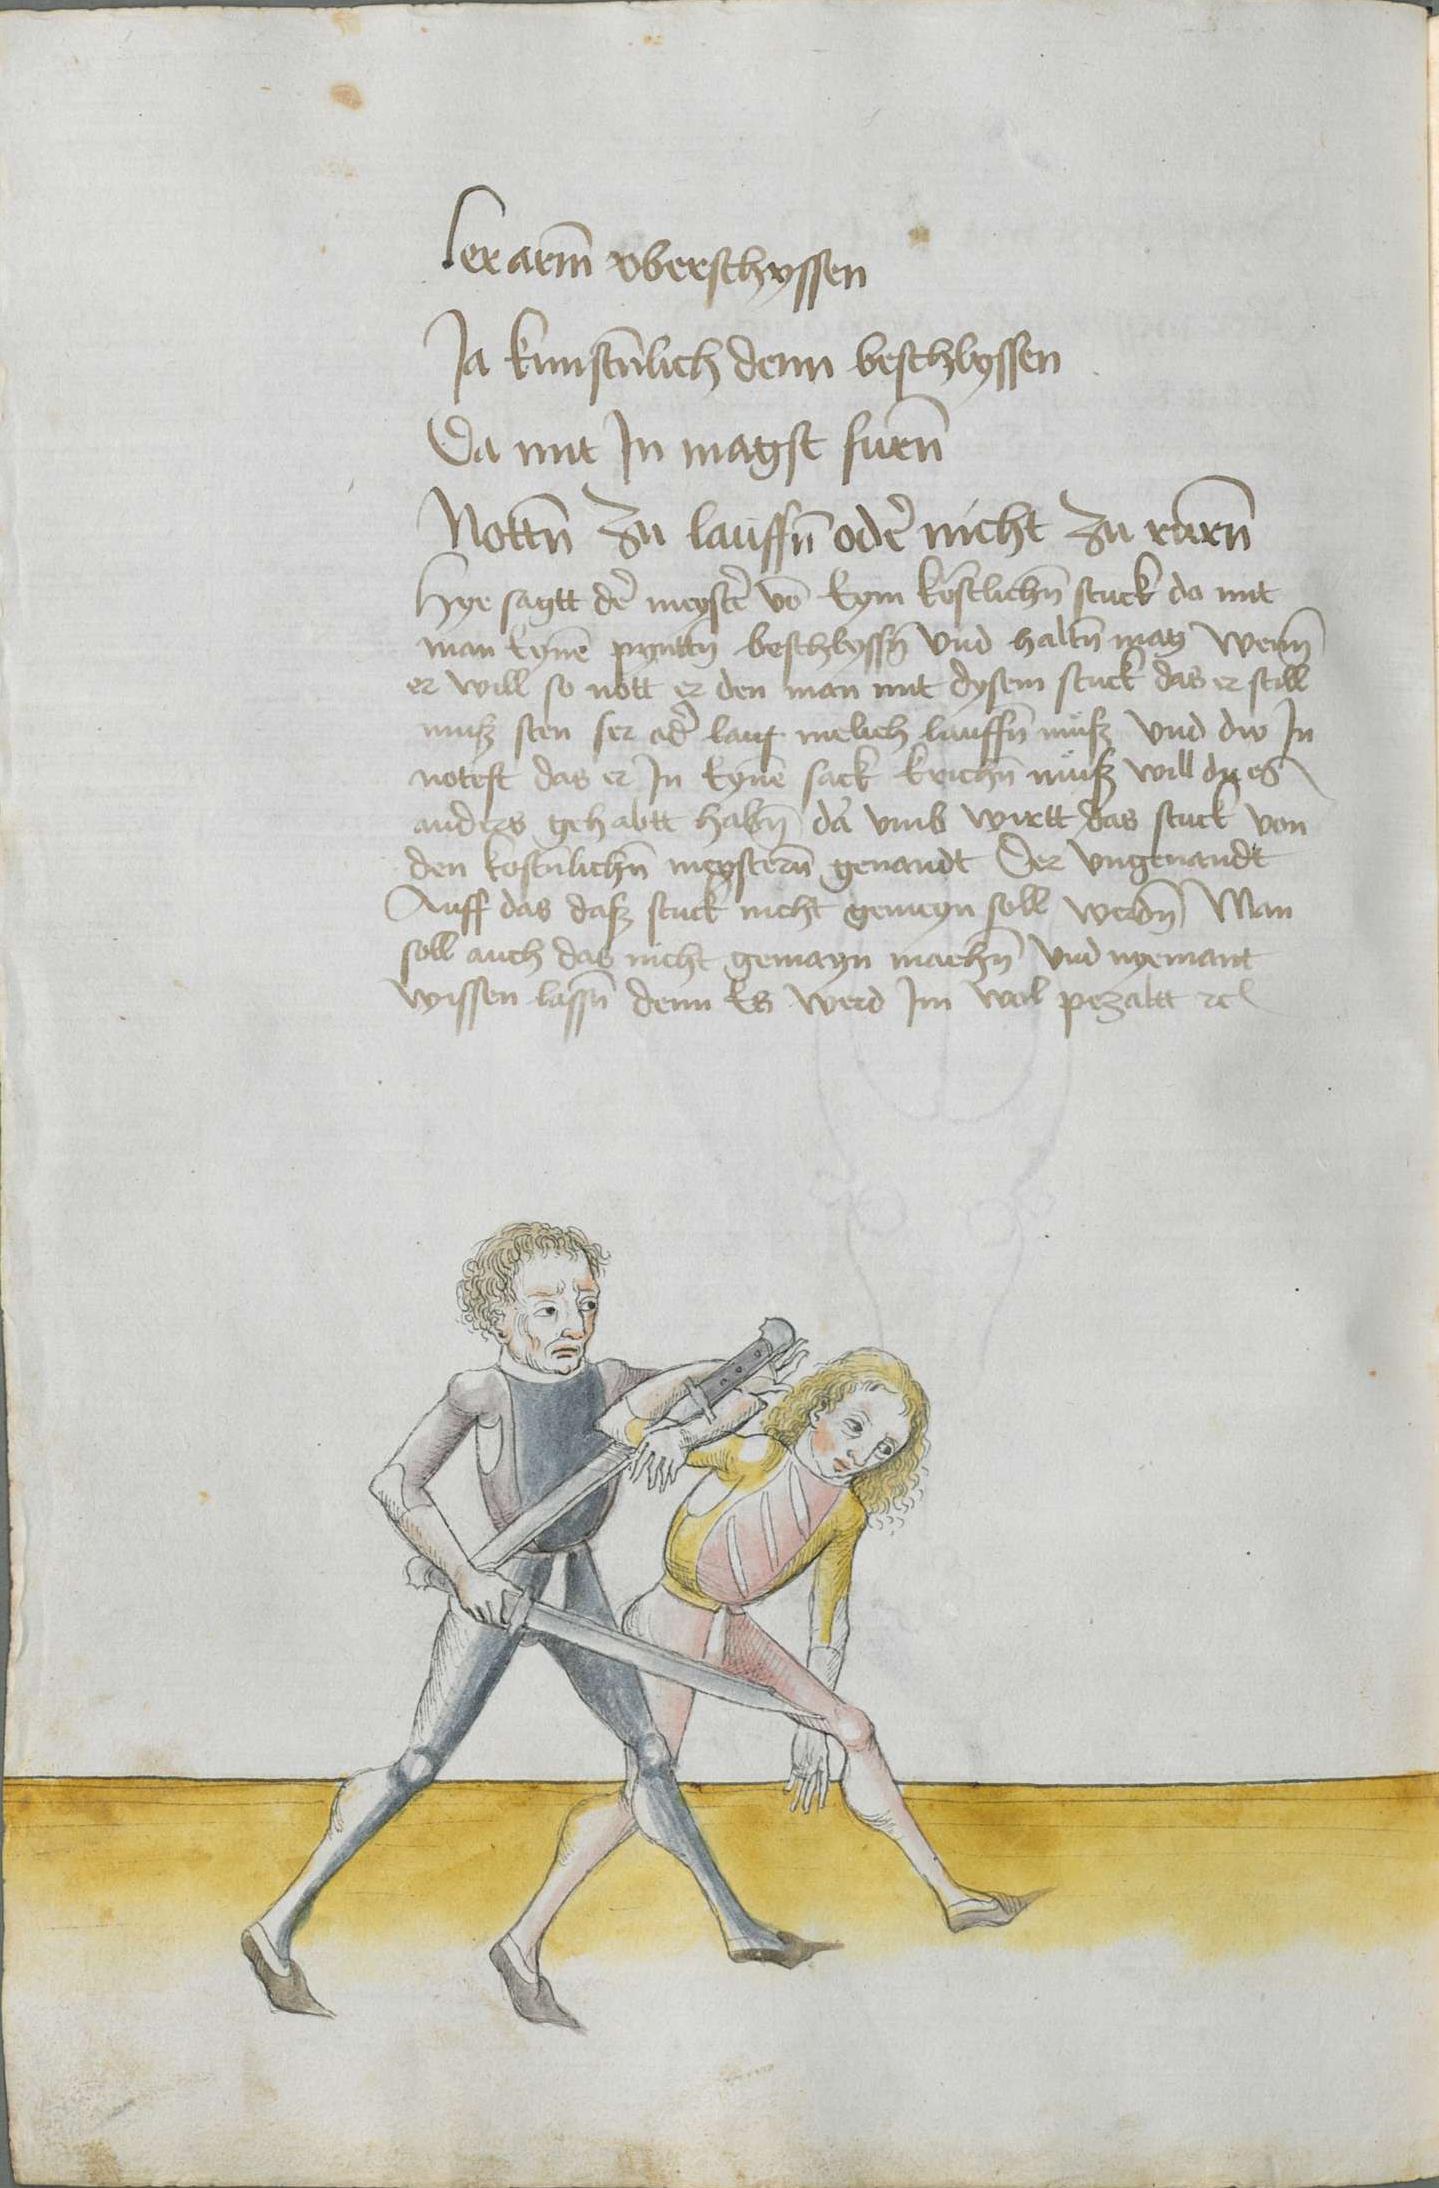 Ler arm̄ vberschyssen
Ja kunstn̄lich denn beschlyssen
Da mit In magst furn̄
Nottn̄ zu lauffn̄ oder̄ nicht zu rurn̄
Hye sagtt der̄ meyster̄ vō Eym kostlichn̄ stuck da mit
man Eynē pyntn̄ beschlyssn̄ vnd haltn̄ mag wenn̄
er will so nott er den man mit dysem stuck das er still
muß sten ser oder̄ melich lauffn̄ muß vnd dw In
notest das er In Eynē sack krichn̄ muß will du es
anders gehabtt habn̄ dar̄ vmb wirtt das stuck von
den kostn̄lichn̄ meystern̄ genandt Der vngenandt
Auff das daß stuck nicht gemeyn soll werdn̄ Man
soll auch das nicht gemayn machn̄ vnd nyemant
wyssen lassn̄ denn Es werd Im wol pezaltt ꝛc